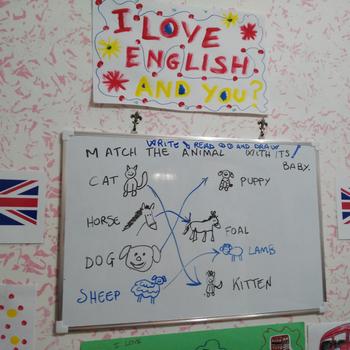 I LOVE
ENGLISH
AND YOU?
WRITE & READ AND DRAW
MATCH THE ANIMAL WITH ITS
BABY.
CAT PUPPY
HORSE FOAL
DOG LAMB
SHEEP KITTEN
I LOVE